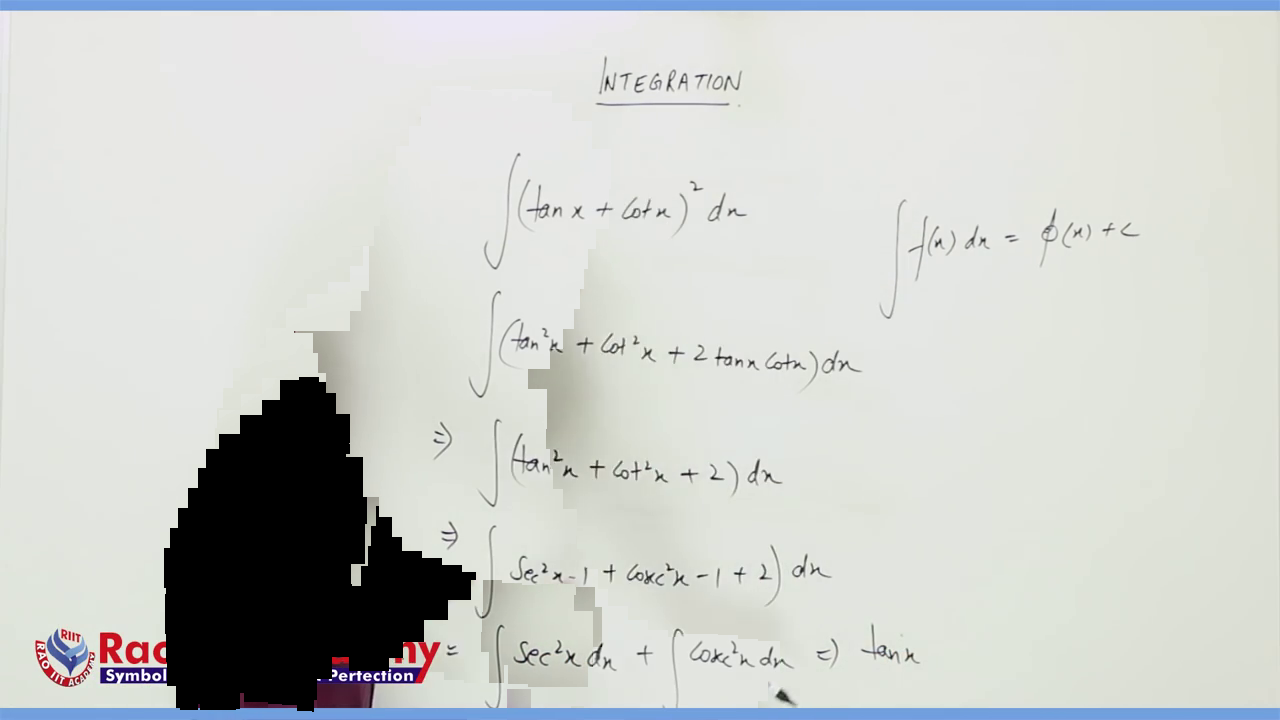 INTEGRATION
∫(tan x + cot x)² dx
∫f(x) dx = ϕ(x) + c
∫(tan²x + cot²x + 2 tanx cotx) dx
⇒ ∫(tan²x + cot²x + 2) dx
⇒ ∫ sec²x - 1 + cosec²x - 1 + 2) dx
= ∫ sec²x dx + ∫ cosec²x dx ⇒ tan x
RIIT
RAO IIT ACADEMY